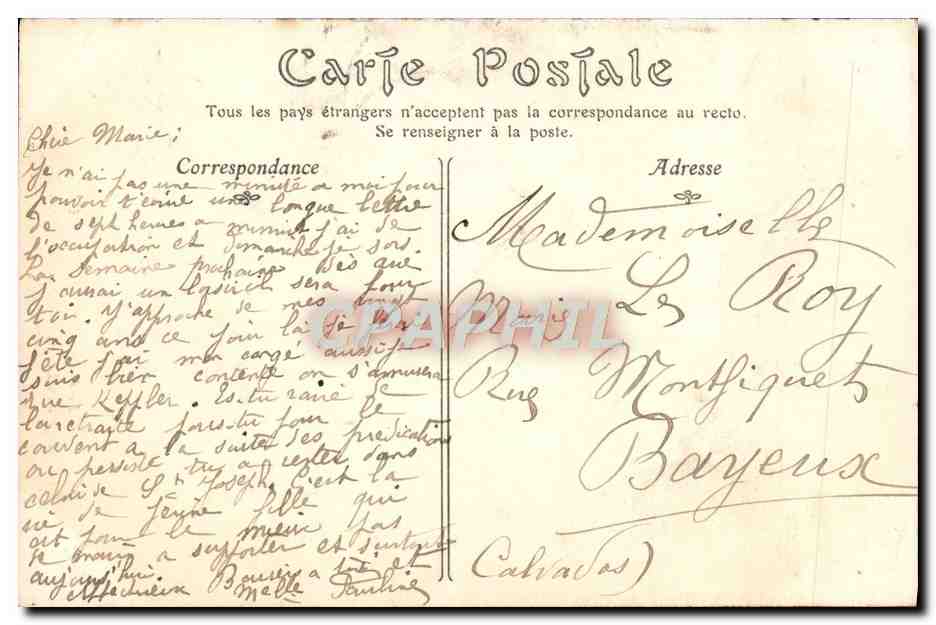 Carte Postale
Tous les pays étrangers n'acceptent pas la correspondance au recto.
Se renseigner à la poste.
Chère Marie;
Correspondance
Je n'ai pas une minute a moi pour
pouvoir t'écrire une longue lettre
de sept heures a j'ai de
l'occupation et dimanche je sors.
La semaine prochaine dès que
j'aurai un loisir il sera pour
toi. J'approche de mes vingt
cinq ans ce jour la je
fête j'ai mon congé aussi je
suis bien contente on s'amusera
rue Keppler. Es-tu ravie de
la retraite pars-tu pour le
couvent a la suite des predications
ou persiste tu a rester dans
celui de St Joseph. C'est la
vie de jeune fille qui
est pour le mieux pas
de maris a supporter et surtout
aujourd'hui
affectueux Baisers a toi et
Melle Pauline
Adresse
Mademoiselle
Marie Le Roy
Rue Montfiquet
Bayeux
Calvados)
CPAPHIL